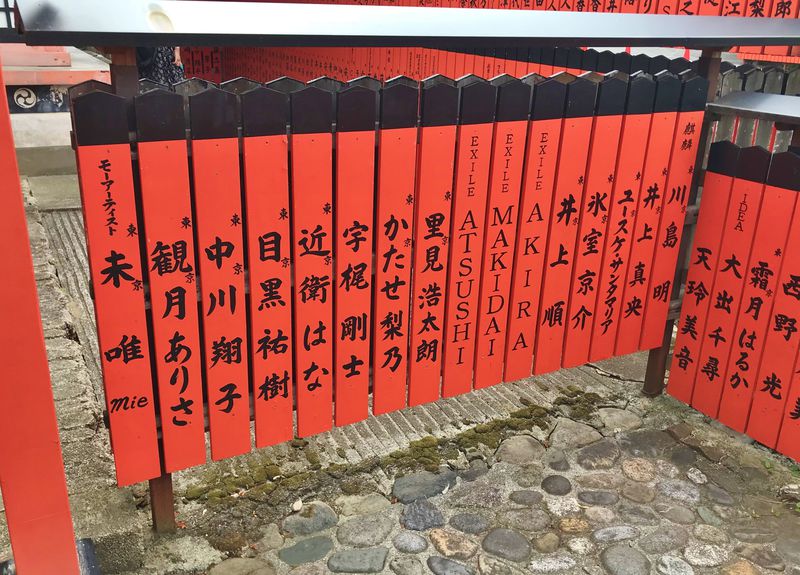 モーアーティスト 東京 未唯 mie
東京 観月ありさ
東京 中川翔子
東京 目黒祐樹
東京 近衛はな
宇梶剛士
東京 かたせ梨乃
東京 里見浩太朗
EXILE ATSUSHI
EXILE MAKIDAI
EXILE AKIRA
東京 井上順
氷室京介
東京 ユースケ・サンタマリア
東京 井上真央
麒麟 川島明
天玲美音
IDEA 大出千尋
東京 霜月はるか
西野光